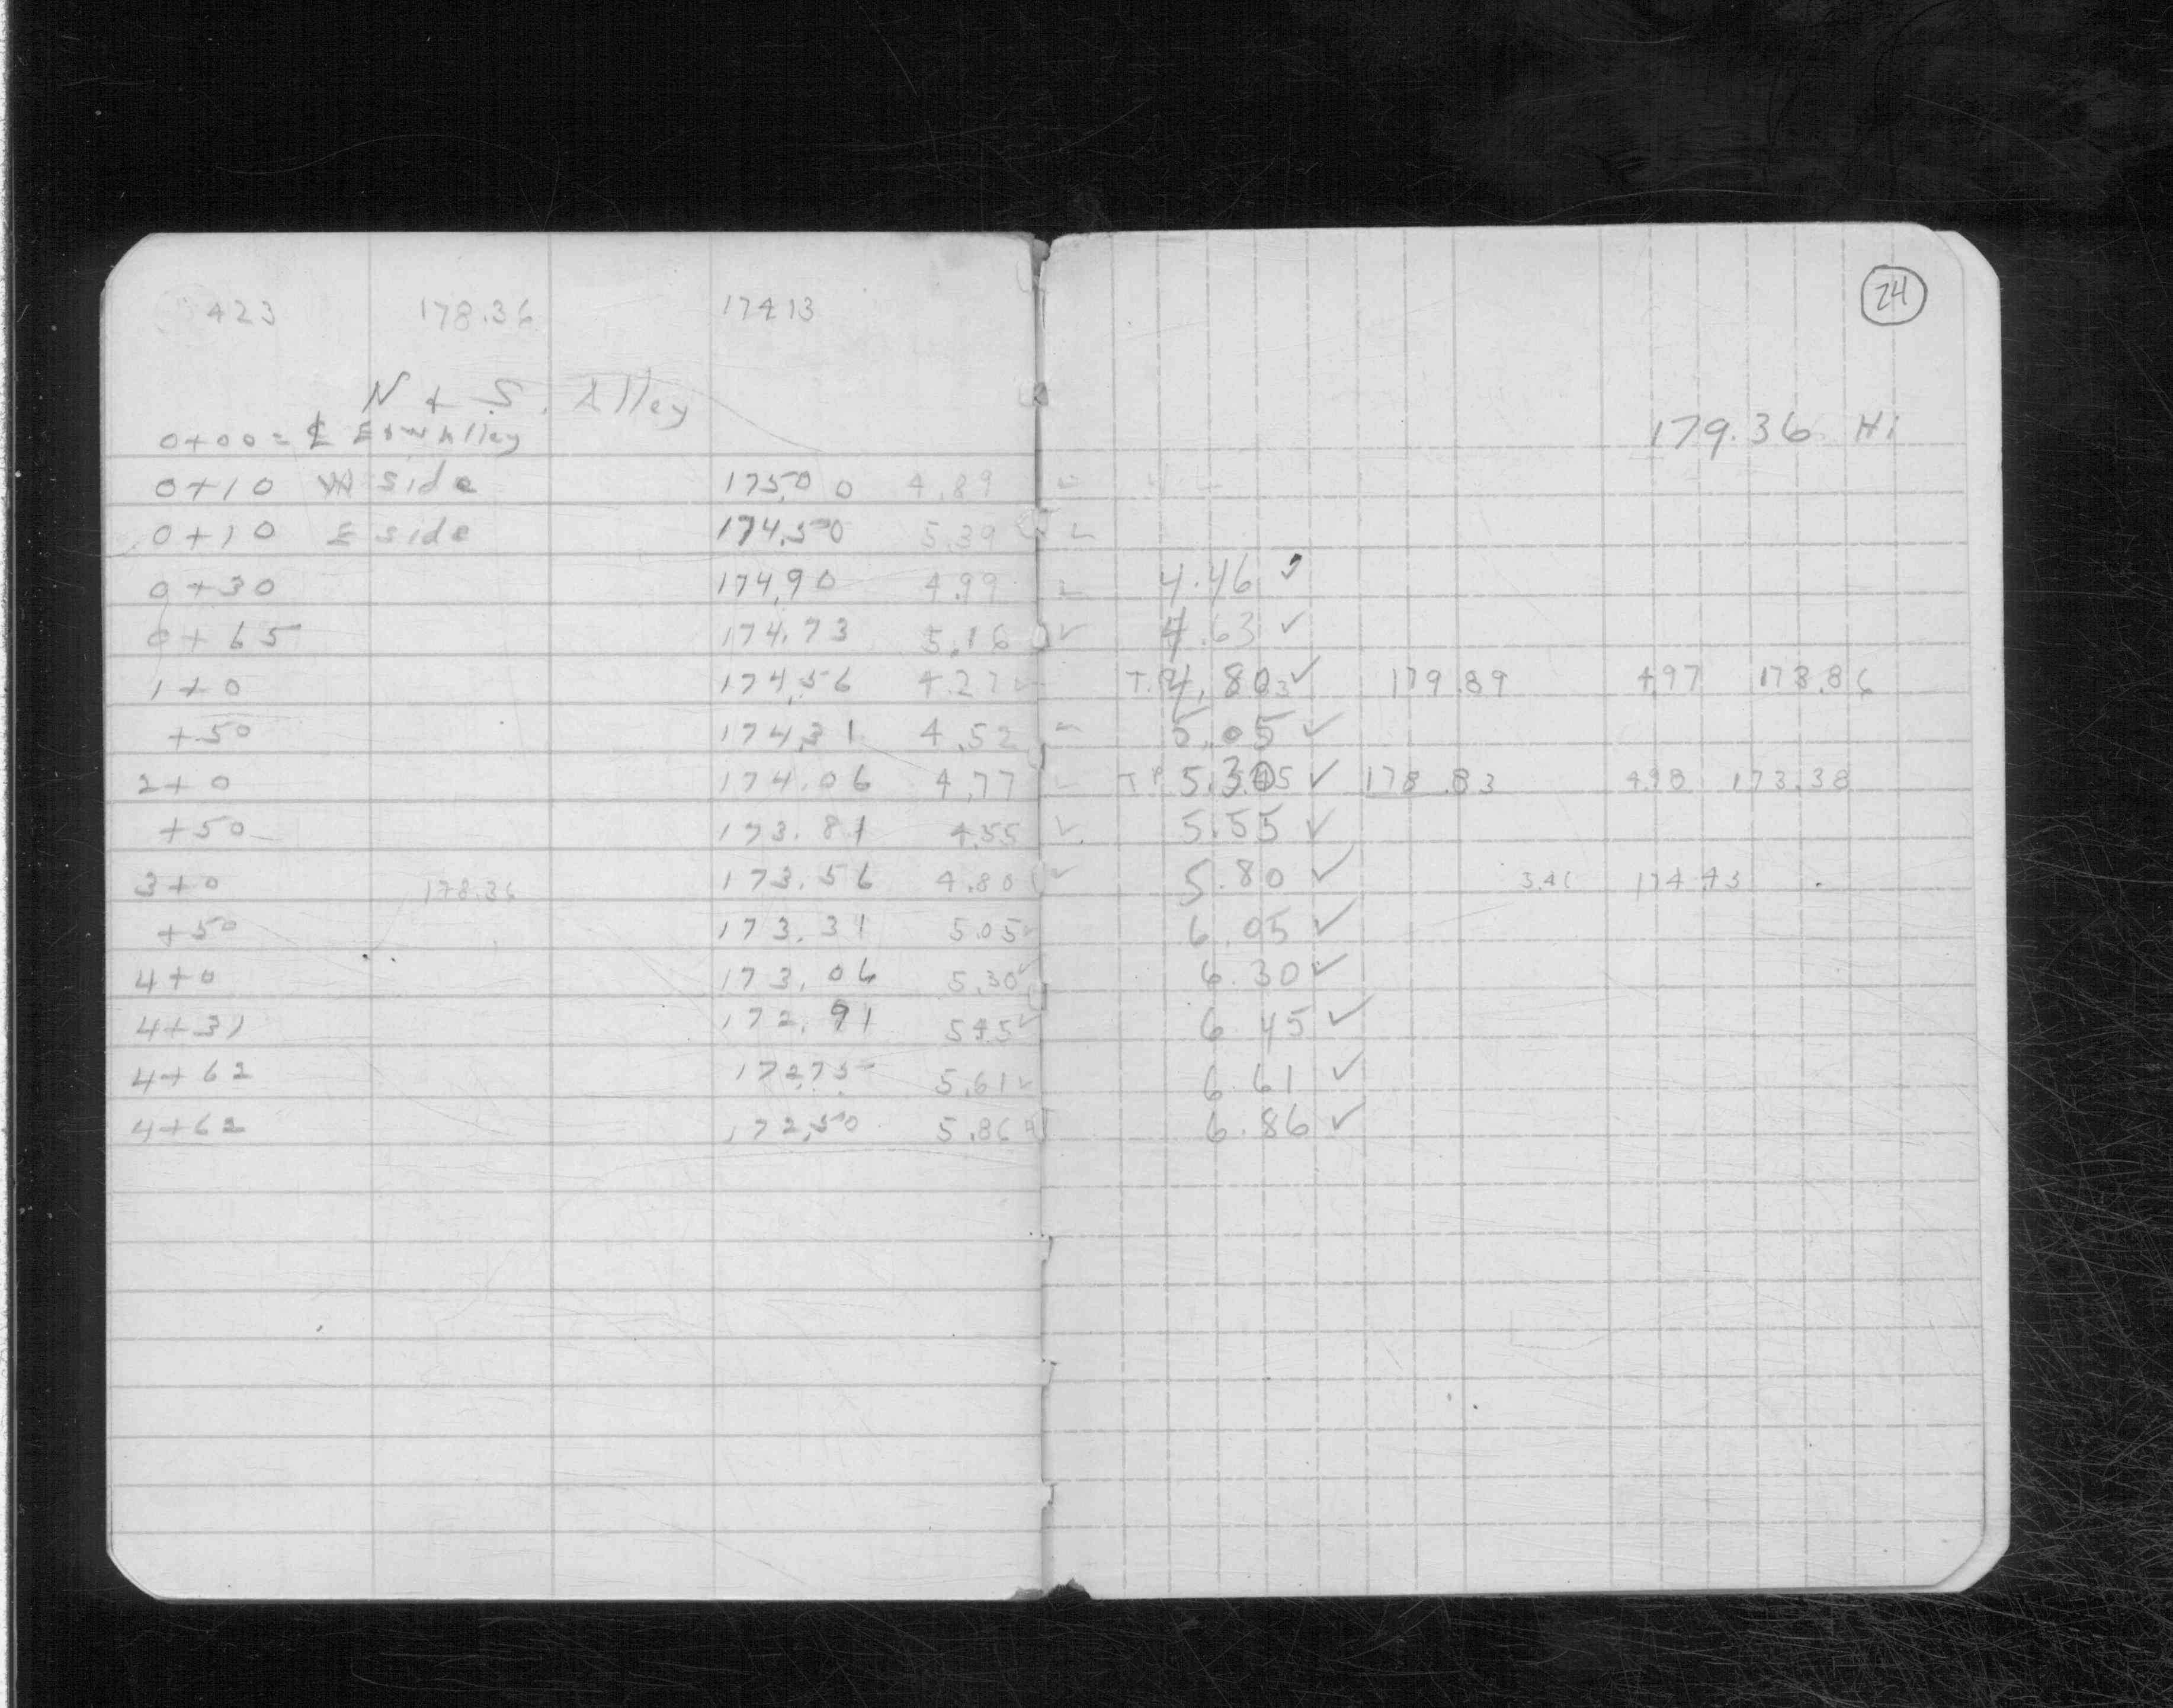 24
423 178.36 174.13
N + S. Alley
179.36 Hi
0+00 = ℄ E+W Alley
0+10 W side 175.00 4.89
0+10 E side 174.50 5.39
0+30 174.90 4.99 4.46 ✓
0+65 174.73 5.16 ✓ 4.63 ✓
1+0 174.56 4.27 ✓ T.P. 4.80 ✓ 179.89 4.97 173.86
+50 174.31 4.52 5.05 ✓
2+0 174.06 4.77 T.P. 5.30 ✓ 178.83 4.98 173.38
+50 173.81 4.55 ✓ 5.55 ✓
3+0 178.36 173.56 4.80 ✓ 5.80 ✓ 174.43
+50 173.31 5.05 ✓ 6.05 ✓
4+0 173.06 5.30 ✓ 6.30 ✓
4+31 172.91 5.45 ✓ 6.45 ✓
4+62 172.75 5.61 ✓ 6.61 ✓
4+62 172.50 5.86 6.86 ✓